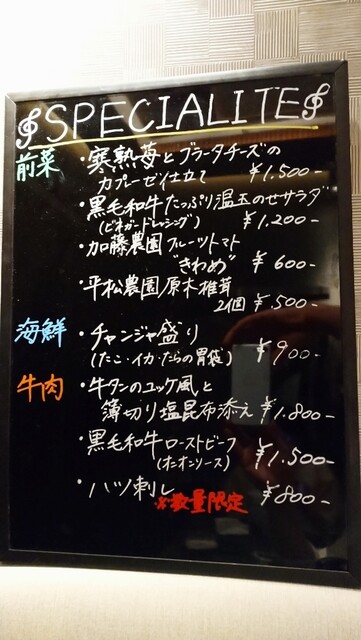 SPECIALITE
前菜
・寒熟苺とブラータチーズの
カプレーゼ仕立て ¥1.500-
・黒毛和牛たっぷり温玉のせサラダ
(ビネガードレッシング) ¥1.200-
・加藤農園フルーツトマト
"きわめ" ¥600-
・平松農園原木椎茸
2個 ¥500-
海鮮
・チャンジャ盛り
(たこ・イカ・たらの胃袋) ¥900-
牛肉
・牛タンのユッケ風と
薄切り塩昆布添え ¥1.800-
・黒毛和牛ローストビーフ
(オニオンソース) ¥1.500-
・ハツ刺し
※数量限定 ¥800-